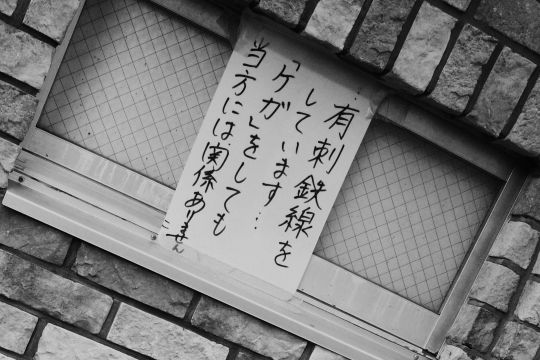 有刺鉄線を
しています…
「ケガ」をしても
当方には関係ありません